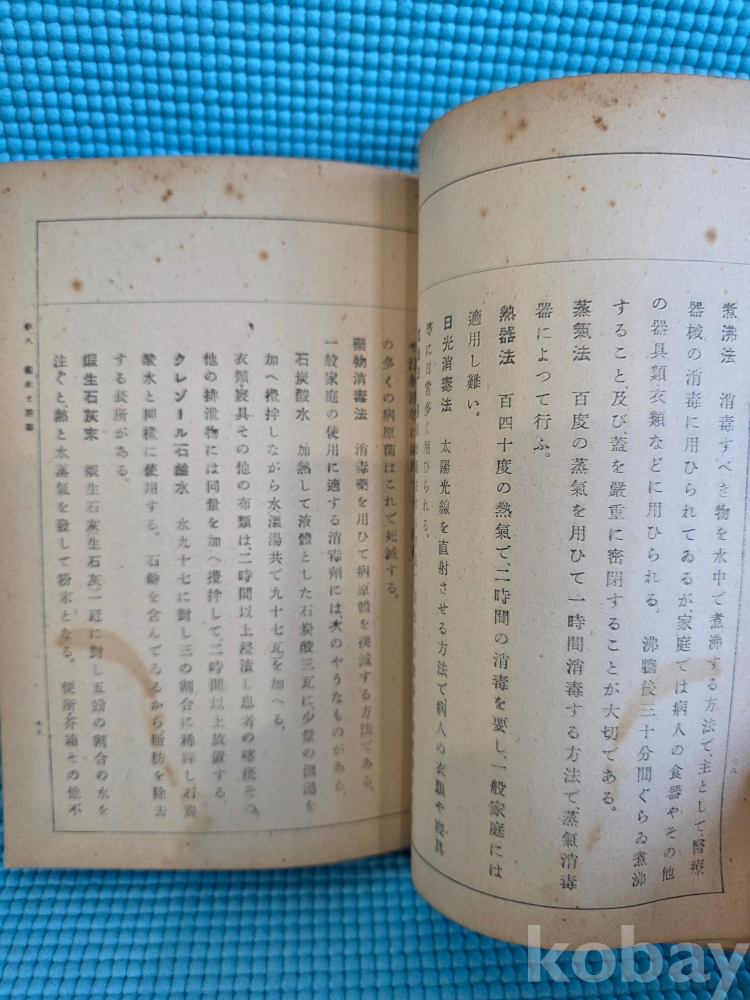 煮沸法 消毒すべき物を水中で煮沸する方法で、主として、醫療
器械の消毒に用ひられてゐるが、家庭では病人の食器やその他
の器具類衣類などに用ひられる。沸騰後三十分間ぐらゐ煮沸
すること、及び蓋を嚴重に密閉することが大切である。
蒸氣法 百度の蒸氣を用ひて一時間消毒する方法で、蒸氣消毒
器によつて行ふ。
熱器法 百四十度の熱氣で、二時間の消毒を要し、一般家庭には
適用し難い。
日光消毒法 太陽光線を直射させる方法で病人の衣類や寢具
等に日常多く用ひられる。
七八
の多くの病原菌はこれで死滅する。
藥物消毒法 消毒藥を用ひて病原體を撲滅する方法である。
一般家庭の使用に適する消毒劑には次のやうなものがある。
石炭酸水 加熱して液體とした石炭酸三瓦に、少量の溫湯を
加へ攪拌しながら水溫湯共で九十七瓦を加へる。
衣類・寢具その他の布類は、二時間以上浸漬し患者の喀痰その
他の排泄物には同量を加へ攪拌して、二時間以上放置する
クレゾール石鹼水 水九十七に對し三の割合に稀釋し石炭
酸水と同樣に使用する。石鹼を含んでゐるから脂肪を除去
する長所がある。
煆生石灰末 煆生石灰(生石灰)一瓩に對し五竕の割合の水を
注ぐと熱と水蒸氣を發して粉末となる。便所芥箱その他不
kobay